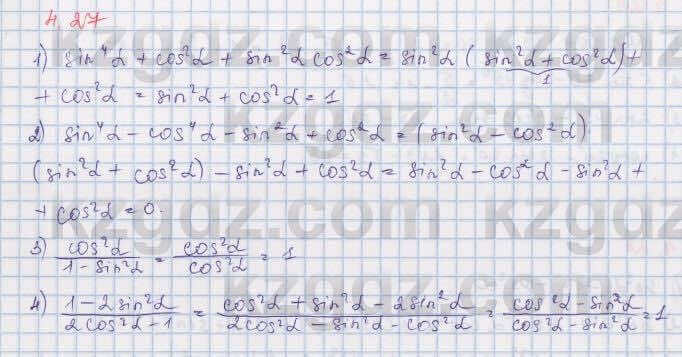 4.27
1) sin⁴α + cos²α + sin²α cos²α = sin²α (sin²α + cos²α) +
1
+ cos²α = sin²α + cos²α = 1
2) sin⁴α - cos⁴α - sin²α + cos²α = (sin²α - cos²α)
(sin²α + cos²α) - sin²α + cos²α = sin²α - cos²α - sin²α +
+ cos²α = 0.
3) cos²α / (1 - sin²α) = cos²α / cos²α = 1
4) (1 - 2sin²α) / (2cos²α - 1) = (cos²α + sin²α - 2sin²α) / (2cos²α - sin²α - cos²α) = (cos²α - sin²α) / (cos²α - sin²α) = 1
kzgdz.com